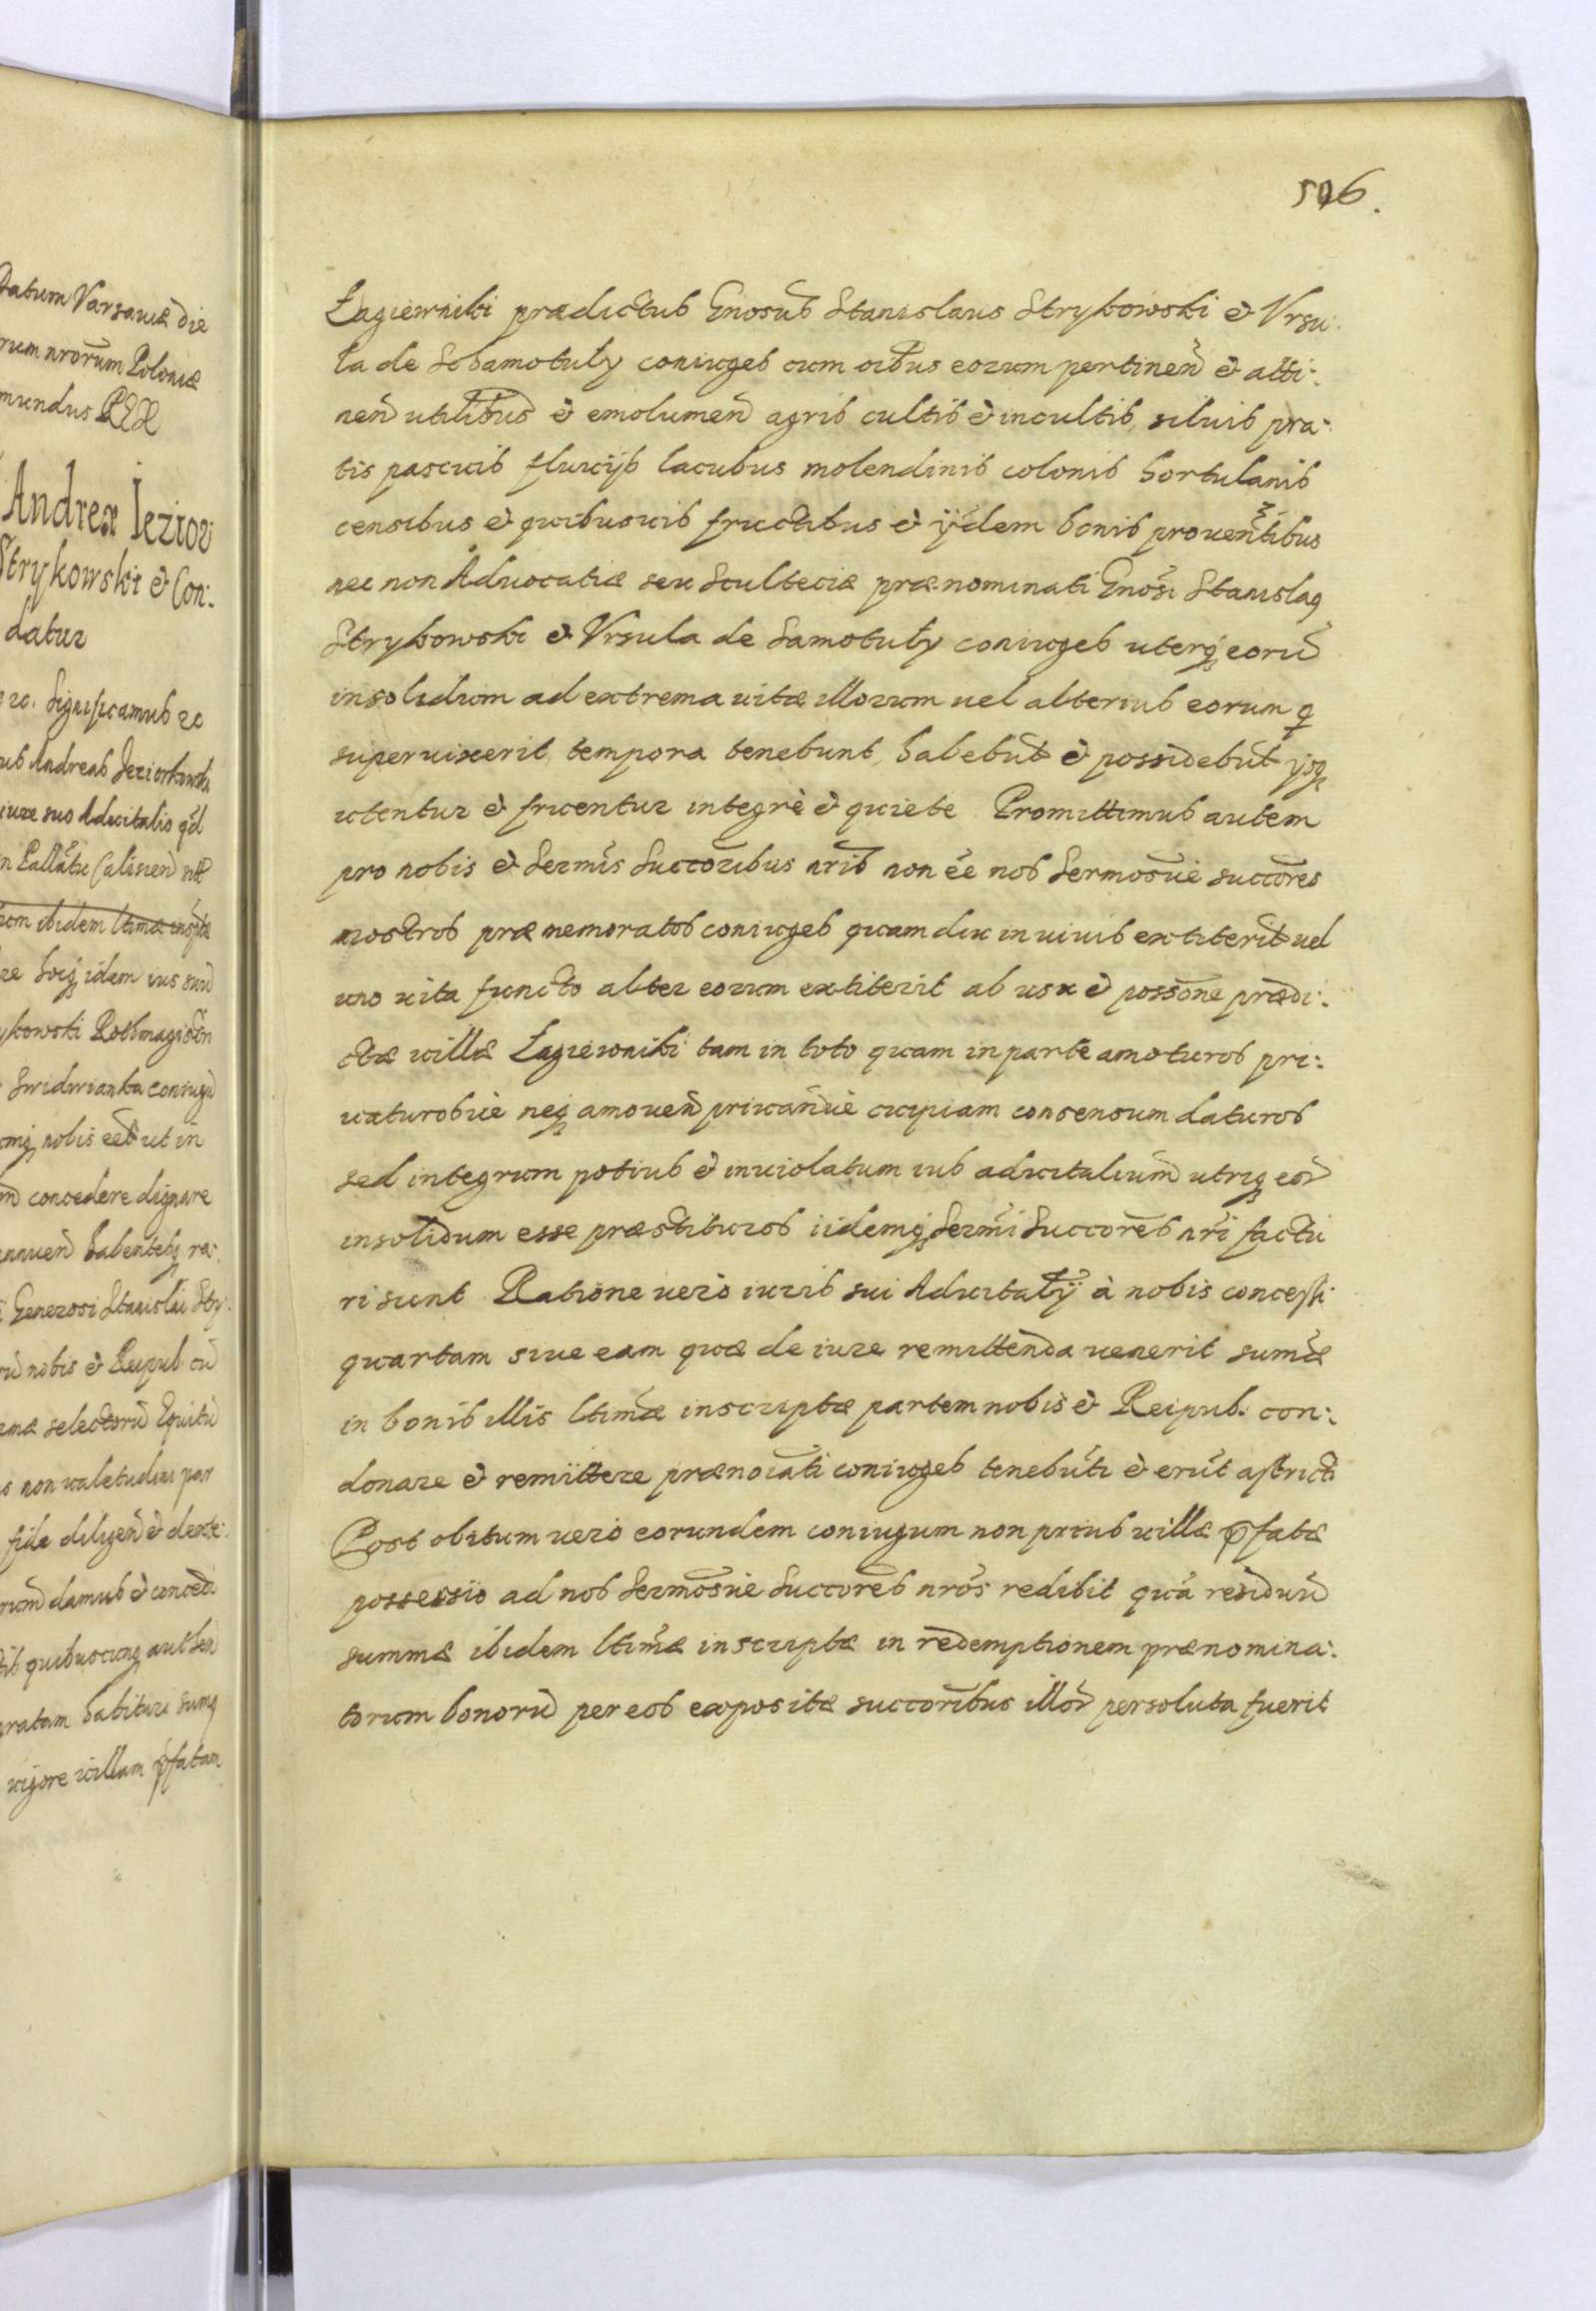 Datum Varsauiæ die
rum nrorum Poloniæ
mundus REX
Andreæ Jezior
Strykowski & Con:
datur
Significamus
Andreas Jeziorkowski
iure suo Aduitalio qd
Pallatu Calisien
ibidem
idem ius suu
ykowski Rothmagistri
Swidwianka coniugu
nobis ut in
concedere dignare
habentes ra:
Generosi Stanislai Stry:
nobis & Reipub cu
selectoru Equitu
non valetudini par
fide diligen & dexte:
damus & conced
quibuscunq authen
gratam habituri sumq
uigore uillam pfatam
506.
Łagiewniki prædictus Gnosus Stanislaus Strykowski & Vrsu:
la de Schamotuły coniuges cum oibus eorum pertinen & atti:
nen utilibus & emolumen agris cultis & incultis, siluis pra:
tis pascuis fluuijs lacubus molendinis colonis hortulanis
censibus & quibusuis fructibus & ijsdem bonis prouentibus
nec non Aduocatiæ seu Scultetiæ prænominati Gnosi Stanislaq
Strykowski & Vrsula de Samotuły coniuges uterq eoru
insolidum ad extrema uitæ illorum uel alterius eorum q
superuixerit, tempora tenebunt, habebut & possidebut ijsq
utentur & fruentur integrè & quiete Promittimus autem
pro nobis & Sermis Succoribus nris non ee nos Sermosue succores
nostros præmemoratos coniuges quamdiu in uiuis extiterit uel
uno uita functo alter eorum extiterit ab usu & possone prædi:
ctæ uillæ Łagiewniki tam in toto quam in parte amoturos pri:
uaturosue neq amouen priuandiue cuipiam consensum daturos
sed integrum potius & inuiolatum ius aduitalium utriq eor
insolidum esse præstituros iidemq Sermi Succores nri factu
ri sunt Ratione uero iuris sui Aduitalij à nobis concessi
quartam siue eam quæ de iure remittenda uenerit sumæ
in bonis illis ltimæ inscriptæ partem nobis & Reipub. con:
donare & remittere prænoiati coniuges tenebuti & erut astricti
Post obitum uero eorundem coniugum non prius uillæ pfatæ
possessio ad nos Sermosue Succores nros redibit quá residuu
summæ ibidem ltimæ inscriptæ in redemptionem prænomina:
torum bonoru per eos expositæ succoribus illor persoluta fuerit